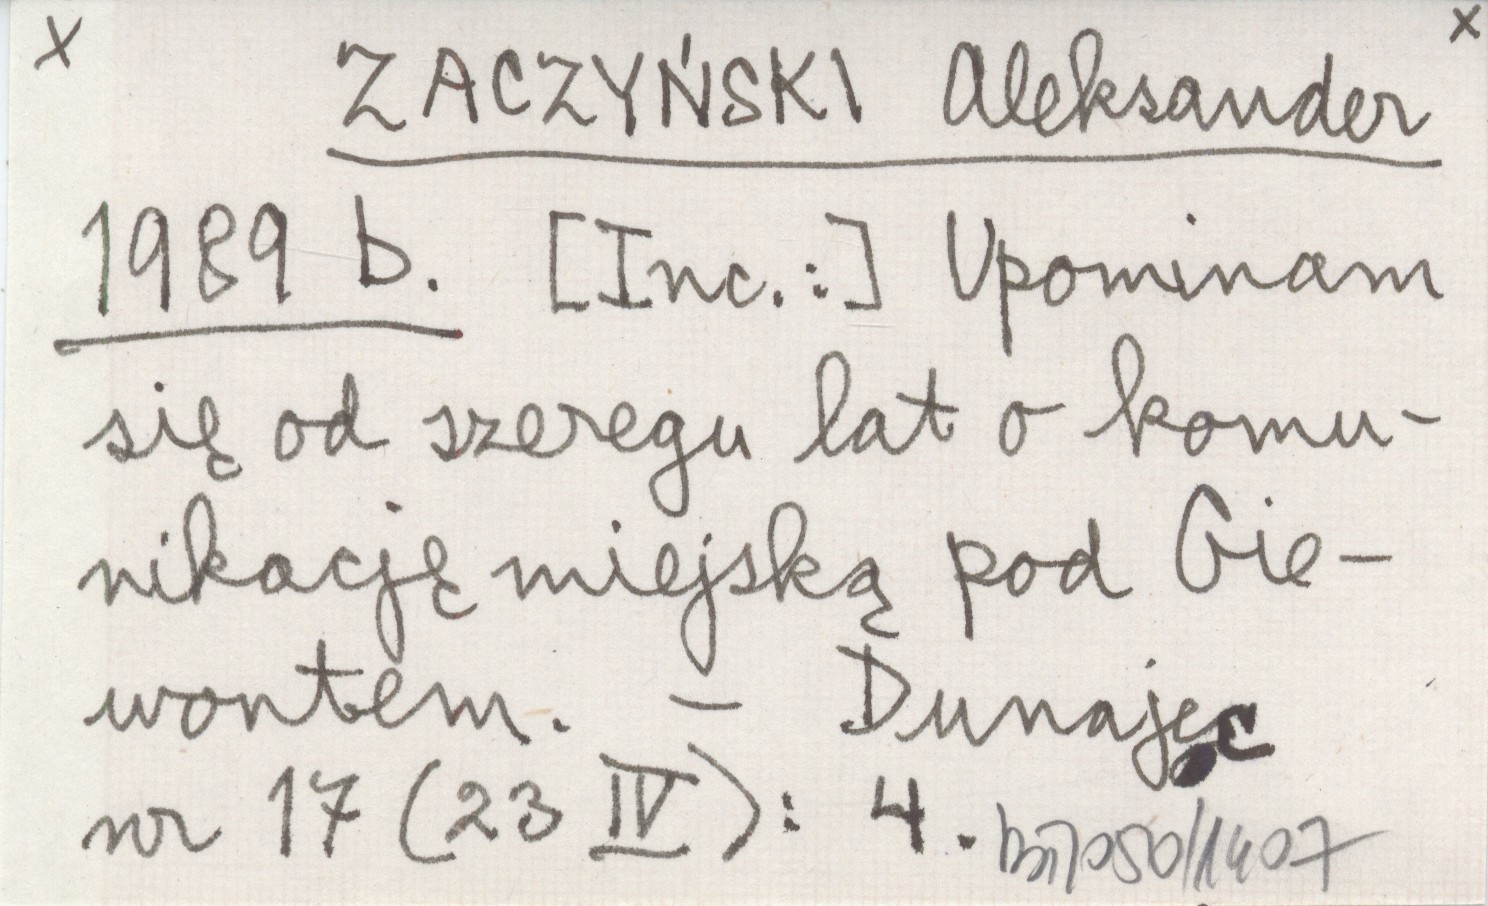 x x
ZACZYŃSKI Aleksander
1989 b. [Inc.:] Upominam
się od szeregu lat o komu-
nikację miejską pod Gie-
wontem. – Dunajec
nr 17 (23 IV): 4.